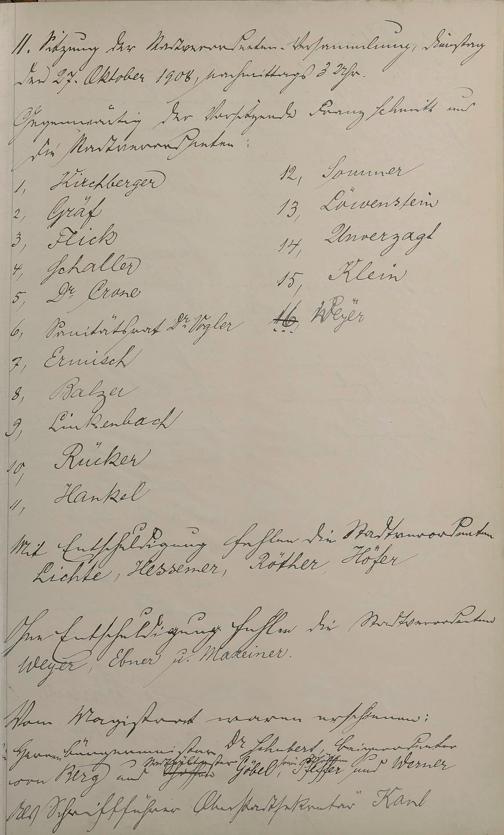 11. Sitzung der Stadtverordneten-Versammlung, Dienstag
den 27. Oktober 1908, nachmittags 3 Uhr.
Gegenwärtig der Vorsitzende Franz Schmitt und
die Stadtverordneten:
1, Kirchberger
2, Gräf
3, Flick
4, Schaller
5, Dr. Crone
6, Sanitätsrat Dr. Vogler
7, Ermisch
8, Balzer
9, Linkenbach
10, Rücker
11, Hankel
12, Sommer
13, Löwenstein
14, Unverzagt
15, Klein
16, Weyer
Mit Entschuldigung fehlen die Stadtverordneten
Lichte, Hessemer, Röther Höfer
Ohne Entschuldigung fehlen die Stadtverordneten
Weyer, Ebner u. Maxeiner.
Vom Magistrat waren erschienen:
Herren Bürgermeister Dr. Schubert, Beigeordneter
von Berg und Göbel, Pfeffer und Werner
als Schriftführer Oberstadtsekretär Kaul